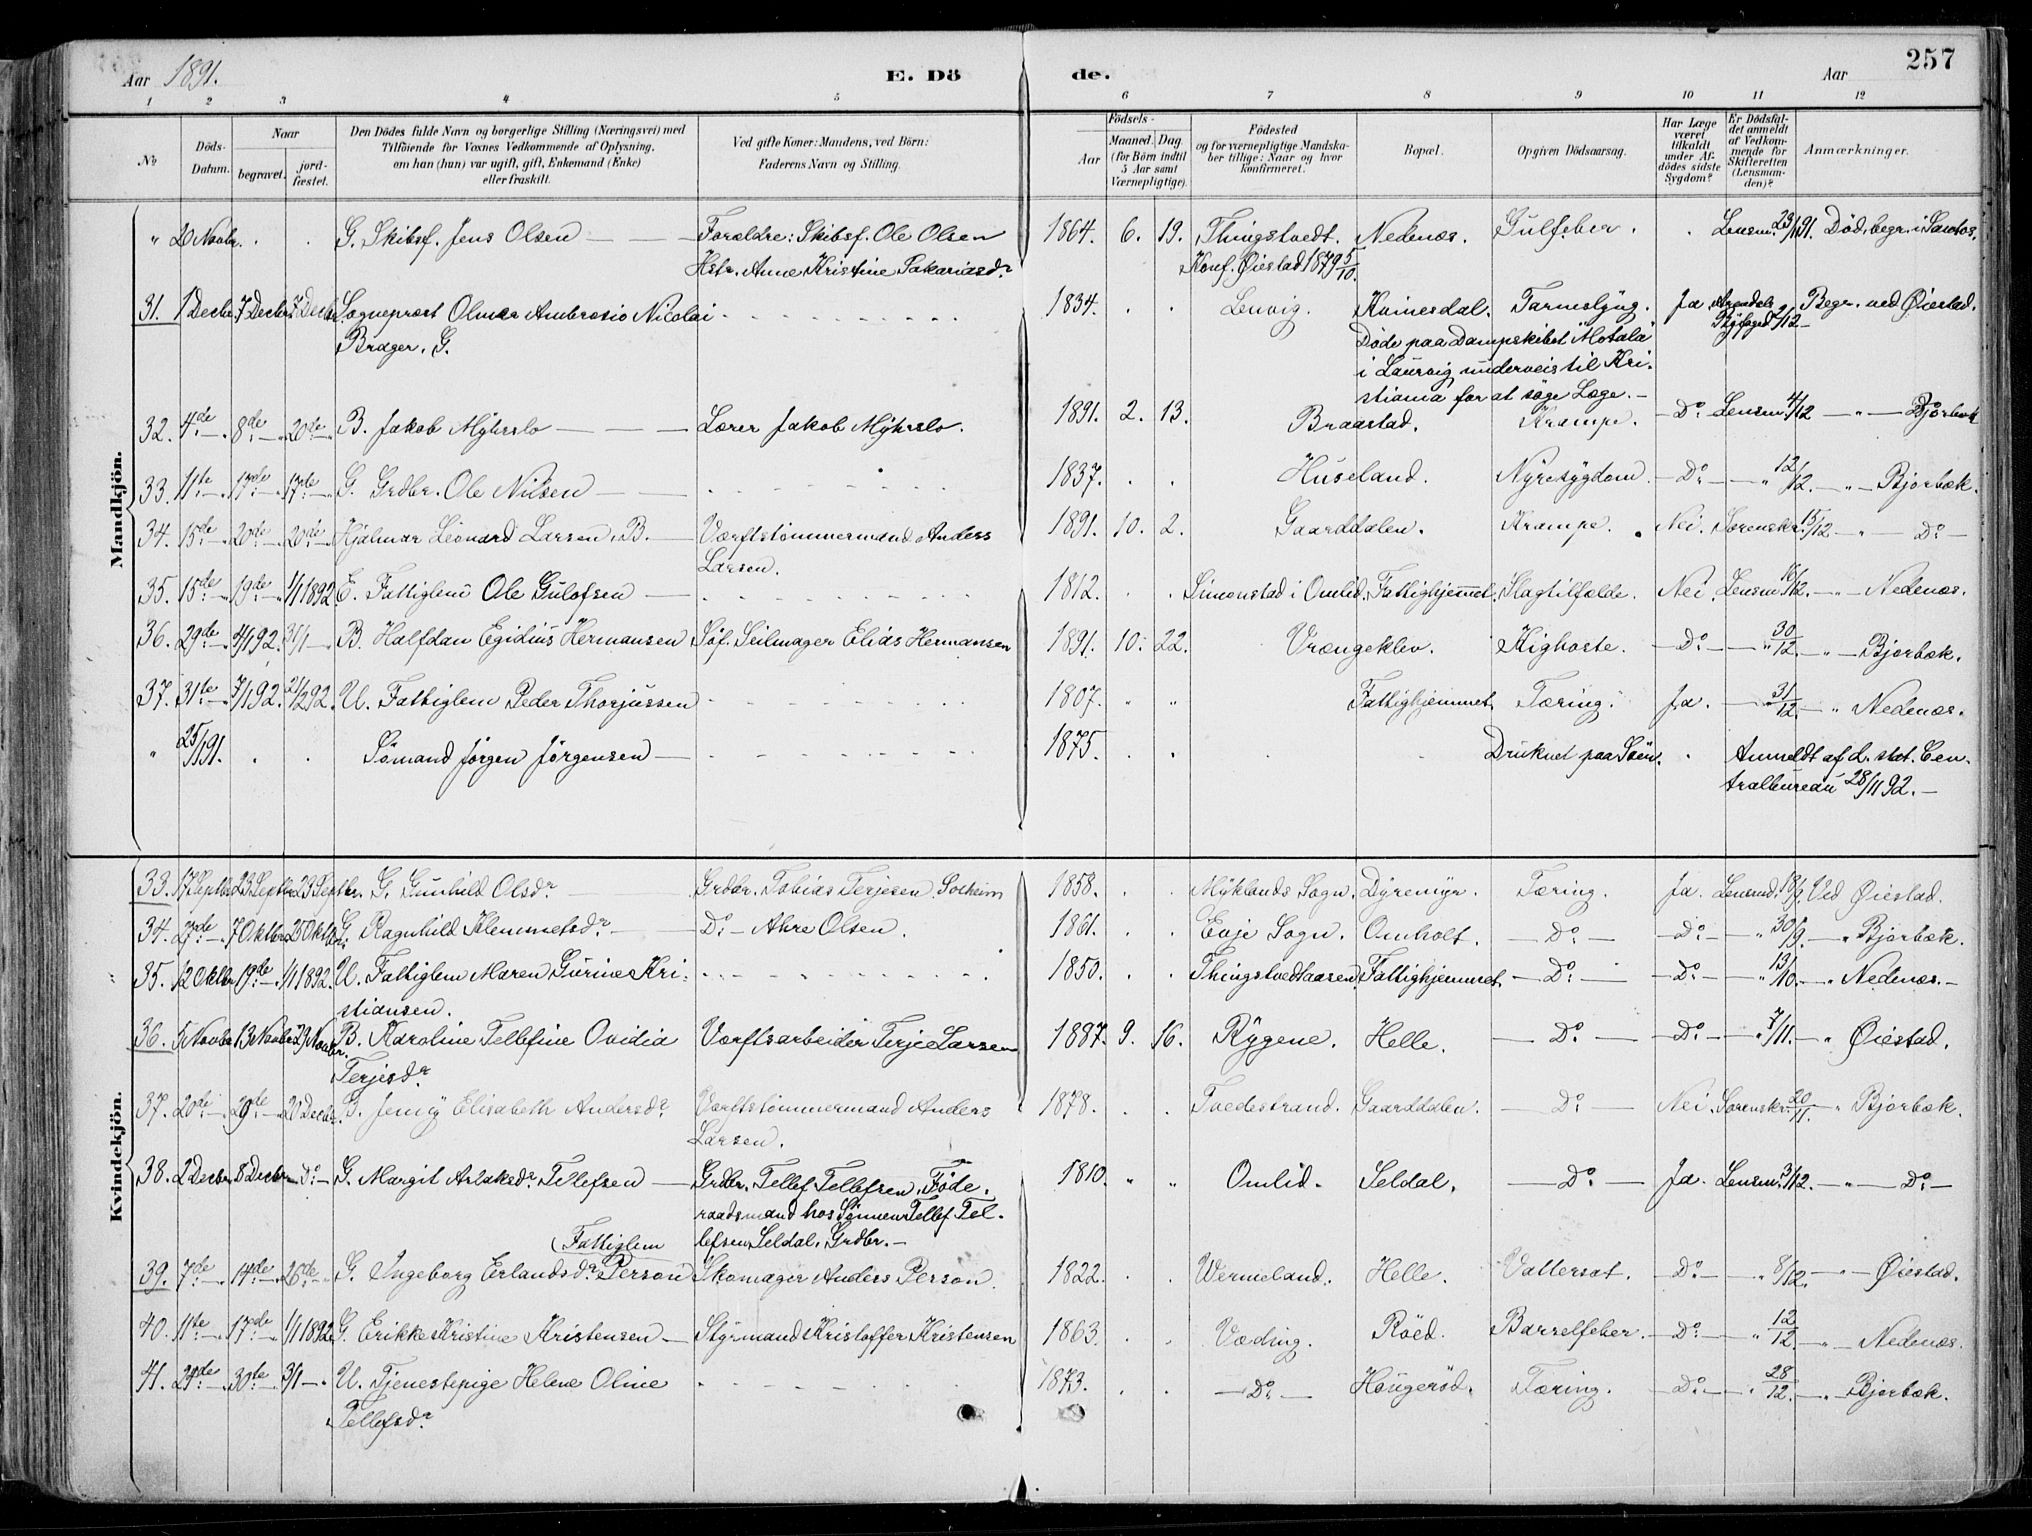 Aar 1891. E. Dö de. Aar 257
1 2 3 4 5 6 7 8 9 10 11 12
No
Döds-Datum.
Naar
begravet.
jordfæstet.
Den Dödes fulde Navn og borgerlige Stilling (Næringsvei) med
Tilföiende for Voxnes Vedkommende af Oplysning,
om han (hun) var ugift, gift, Enkemand (Enke)
eller fraskilt.
Ved gifte Koner: Mandens, ved Börn:
Faderens Navn og Stilling.
Födsels-
Aar
Maaned. Dag.
(for Börn indtil
5 Aar samt
Værnepligtige).
Födested
og for værnepligtige Mandska-
ber tillige: Naar og hvor
konfirmeret.
Bopæl.
Opgiven Dödsaarsag.
Har Læge
været
tilkaldt
under Af-
dödes sidste
Sygdom?
Er Dödsfal-
det anmeldt
af Vedkom-
mende for
Skifteretten
(Lensman-
den)?
Anmærkninger.
Mandkjön.
" 20 Novbr. . . G. Skibsf. Jens Olsen — Forældre: Skibsf. Ole Olsen 1864. 6. 19. Thingstvedt. Nedenæs. Gulfeber. . Lensm. 23/1 91. Död, begr. i Santos.
Hstr. Anne Kristine Sakariasdr. Konf. Øiestad 1879 5/10.
31. 1 Decbr. 7 Decbr. 7 Decbr. Sogneprest Olmer Ambrosio Nicolai - - - 1834. . . Lenvig. Kvinesdal. Tarmslyng. Ja. Arendals 2/12 Begr. ved Øiestad.
Brager. G. Døde paa Dampskibet "Motala" Byfoged
i Laurvig underveis til Kri-
stiania for at søge Læge. —
32. 4de 8de 20de B. Jakob Myhrslo — Lærer Jakob Myhrslo. 1891. 2. 13. Braastad. Krampe. Do Lensm. 4/12 — " — Bjorbæk
33. 11te 17de 17de G. Grdbr. Ole Nilsen — - - - 1837. . . Huseland. Nyresygdom. Do — " 12/12. — " — Bjorbæk.
34. 15de 20de 20de Hjalmar Leonard Larsen. B. — Værftstømmermand Anders 1891. 10. 2. Gaarddalen. Krampe. Nei. Sorenskr. 15/12 — " — Do —
Larsen.
35. 15de 19de 1/1 1892. E. Fattiglem Ole Gulofsen — - - - 1812. . . Simonstad i Omlid. Fattighjemmet. Slagtilfælde. Nei. Lensm. 16/12. — " — Nedenæs.
36. 29de 4/1 92. 31/1 — B. Halfdan Egidius Hermansen Søf. Seilmager Elias Hermansen 1891. 10. 22. Vrængeklev. Kighoste. Do — " 30/12. — " — Bjorbæk.
37. 31te 7/1 92. 21/2 92. U. Fattiglem Peder Thorjussen - - - 1807. " " Fattighjemmet. Tæring. Ja. — " 31/12. — " Nedenæs.
" 25/1 91. . . Sømand Jørgen Jørgensen — - - - 1875. . . . . Druknet paa Søen. . Anmeldt af d. stat. Cen-
tralbureau 28/11 92. —
Kvindekjön.
33. 17 Septbr. 23 Septbr. 23 Septbr. G. Gunhild Olsdr — Grdbr. Tobias Terjesen Solheim 1858. . . Myklands Sogn. Dyremyr. Tæring. Ja. Lensmd. 18/9. Ved Øiestad.
34. 27de 7 Oktbr. 25 Oktbr. G. Ragnhild Klemmetsdr — Do — Ahre Olsen. 1861. . . Evje Sogn. Omholt. — Do — Do — " 30/9. — " Bjorbæk.
35. 12 Oktbr. 19de 1/1 1892. U. Fattiglem Maren Gurine Kri- - - - 1850. . . Thingstvedtaasen. Fattighjemmet. — Do — Do — " 13/10. — " Nedenæs. —
stiansen.
36. 5 Novbr. 13 Novbr. 29 Novbr. B. Karoline Tellefine Ovidia Værftsarbeider Terje Larsen 1887. 9. 16. Rygene. Helle. — Do — Do — " 7/11. — " Øiestad.
Terjesdr.
37. 20de 29de 20 Decbr. B. Jenny Elisabeth Andersdr. Værftstømmermand Anders 1878. . . Tvedestrand. Gaarddalen. — Do — Nei. Sorenskr. 20/11. — " Bjorbæk.
Larsen.
38. 2 Decbr. 8 Decbr. Do — G. Margit Aslaksdr. Tellefsen — Grdbr. Tellef Tellefsen, Føde- 1810. " " Omlid. Seldal. — Do — Ja. Lensm. 3/12. — " — Do —
raadsmand hos Sønnen Tellef Tel-
(Fattiglem lefsen Seldal, Grdbr. —
39. 7de 14de 26de G. Ingeborg Erlandsdr. Person Skomager Anders Person. 1822. . . Wermeland. Helle. Vattersot. Do — " 8/12. — " — Øiestad.
40. 11te 17de 1/1 1892. G. Erikke Kristine Kristensen — Styrmand Kristoffer Kristensen 1863. . . Væding. Røed. Barselfeber. Do — " 12/12. — " Nedenæs.
41. 24de 30te 3/1 — U. Tjenestepige Helene Oline - - - 1873. . . — Do — Haugerød. Tæring. Do — " 28/12. — " Bjorbæk.
Tellefsdr.